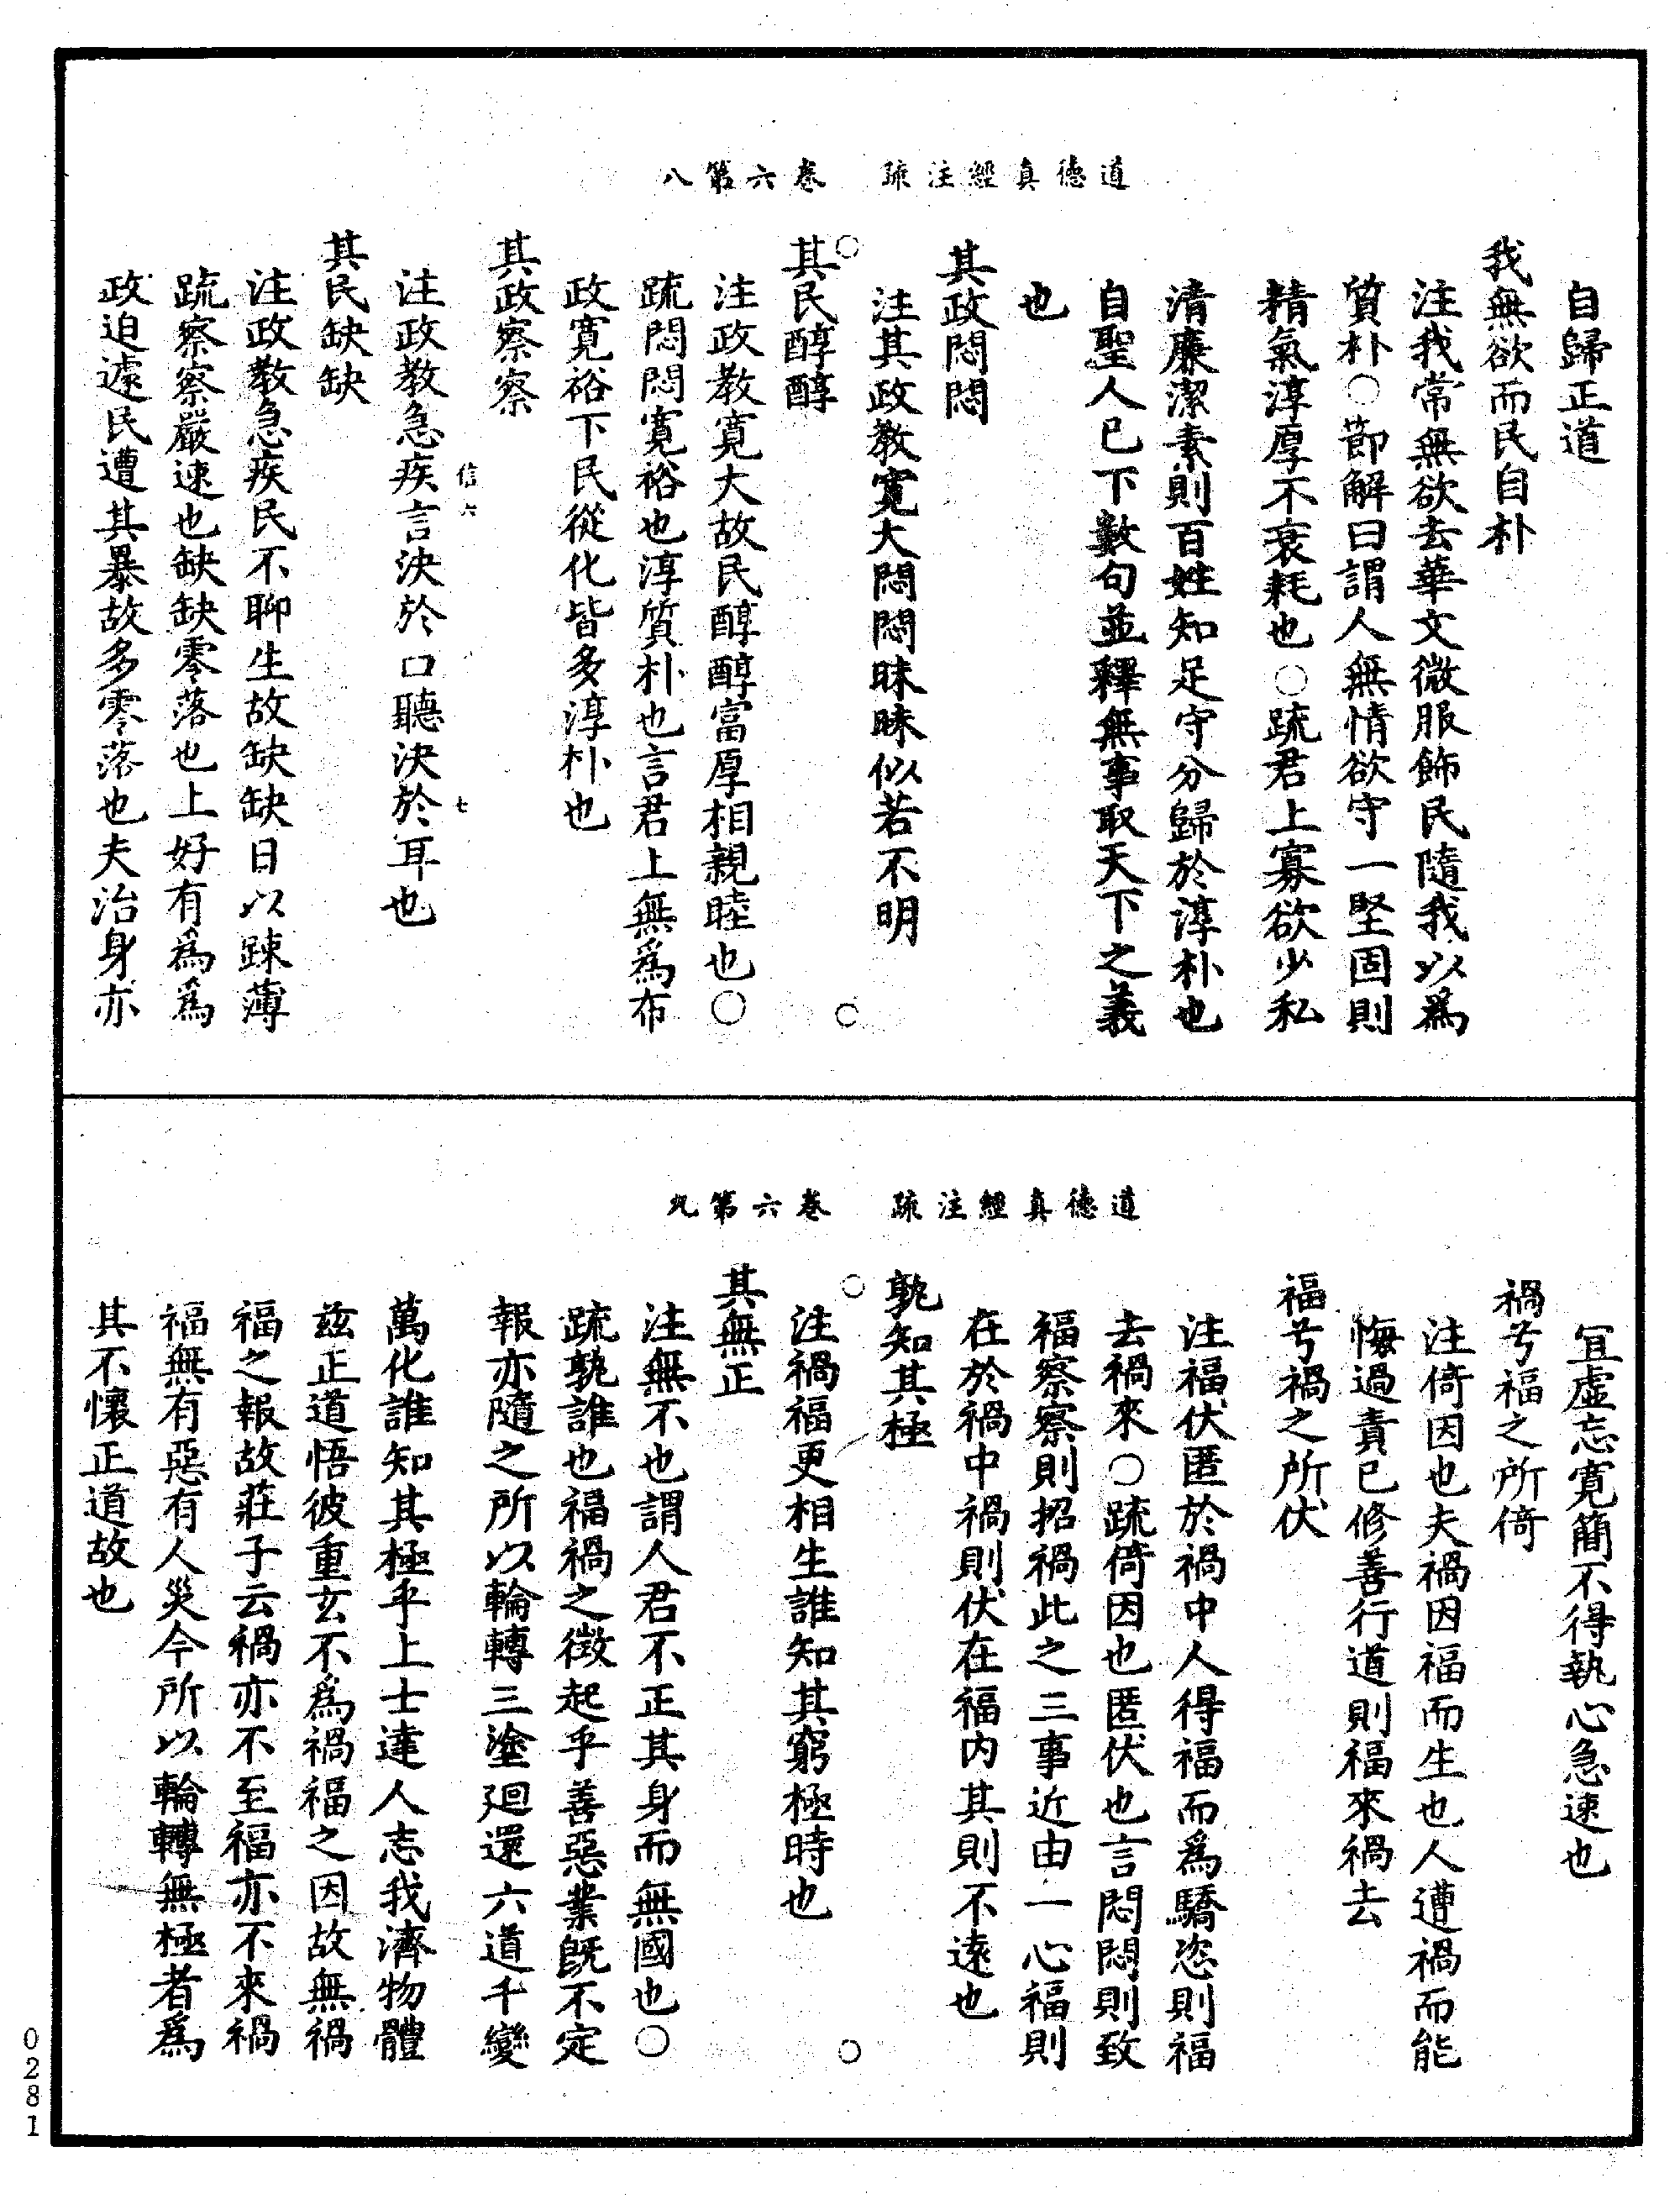 道德真經注疏　卷六第八
自歸正道
我無欲而民自朴
注我常無欲去華文微服飾民隨我以爲
質朴○節解曰謂人無情欲守一堅固則
精氣淳厚不衰耗也○疏君上寡欲少私
清廉潔素則百姓知足守分歸於淳朴也
自聖人已下數句並釋無事取天下之義
也
其政悶悶
注其政教寬大悶悶昧昧似若不明
○　○
其民醇醇
注政教寬大故民醇醇富厚相親睦也○
疏悶悶寬裕也淳質朴也言君上無爲布
政寬裕下民從化皆多淳朴也
其政察察
信六　七
注政教急疾言決於口聽決於耳也
其民缺缺
注政教急疾民不聊生故缺缺日以踈薄
疏察察嚴速也缺缺零落也上好有爲爲
政迫遽民遭其暴故多零落也夫治身亦
道德真經注疏　卷六第九
宜虛忘寬簡不得執心急速也
禍兮福之所倚
注倚因也夫禍因福而生也人遭禍而能
悔過責已修善行道則福來禍去
福兮禍之所伏
注福伏匿於禍中人得福而爲驕恣則福
去禍來○疏倚因也匿伏也言悶悶則致
福察察則招禍此之三事近由一心福則
在於禍中禍則伏在福内其則不遠也
孰知其極
○　○
注禍福更相生誰知其窮極時也
其無正
注無不也謂人君不正其身而無國也○
疏孰誰也福禍之徵起乎善惡業既不定
報亦隨之所以輪轉三塗廻還六道千變
萬化誰知其極乎上士達人志我濟物體
茲正道悟彼重玄不爲禍福之因故無禍
福之報故莊子云禍亦不至福亦不來禍
福無有惡有人災今所以輪轉無極者爲
其不懷正道故也
0281